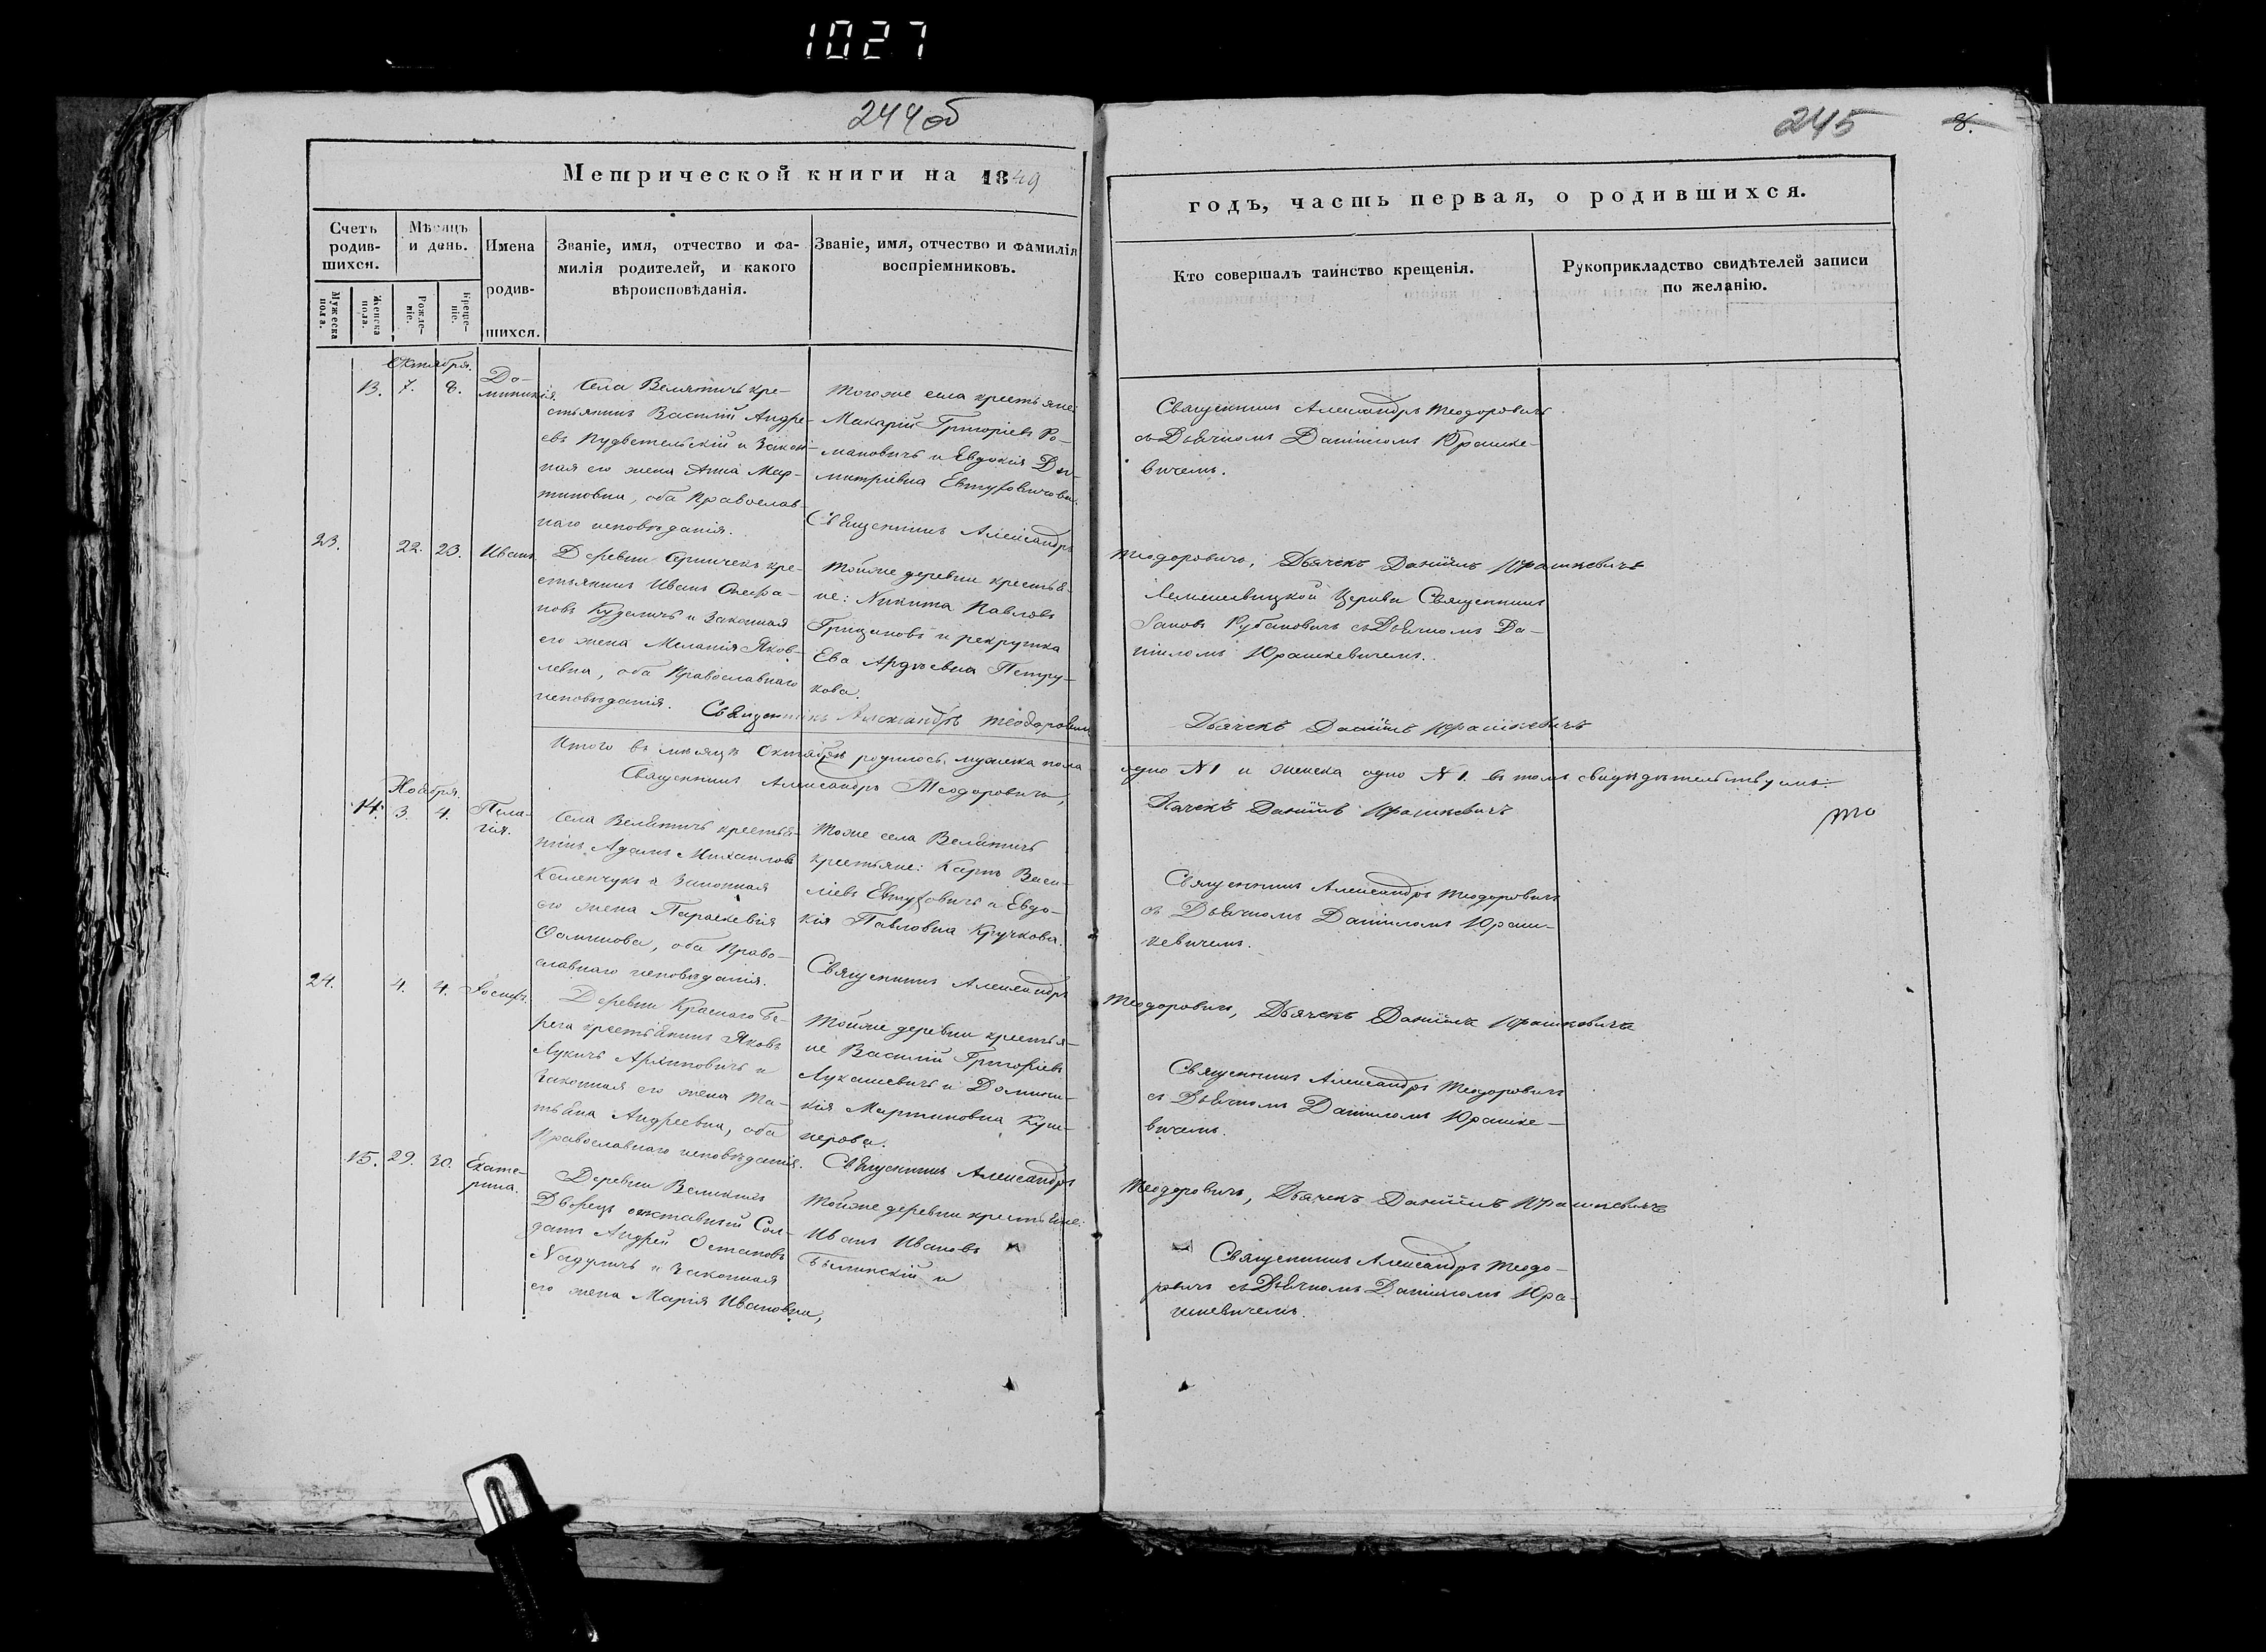 1027
244об
245
8.
Метрической книги на 1849
годъ, часть первая, о родившихся.
Счетъ родившихся.
Мужеска пола.
Женска пола.
Мѣсяцъ и день.
Рожденіе.
Крещеніе.
Имена родившихся.
Званіе, имя, отчество и фамилія родителей, и какого вѣроисповѣданія.
Званіе, имя, отчество и фамилія воспріемниковъ.
Кто совершалъ таинство крещенія.
Рукоприкладство свидѣтелей записи по желанію.
Октября.
13. 7. 8. До-
миникія.
Села Велятичъ кре-
стьянинъ Василій Андре-
евъ и закон-
ная его жена Анна Мар-
тиновна, оба Православ-
наго исповѣданія.
Тогоже села крестьяне:
Макарій Григоріевъ Ро-
мановичъ и Евдокія Ди-
митріевна Евтуховичова.
Священникъ Александръ Теодоровичъ
съ Дьячкомъ Даніиломъ Юрашке-
вичемъ.
Священникъ Александръ
Теодоровичъ, Дьячекъ Даніилъ Юрашкевичъ
23. 22. 23. Иванъ.
Деревни кре-
стьянинъ Иванъ
новъ и законная
его жена Меланія Яков-
левна, оба Православнаго
исповѣданія.
Тойже деревни крестья-
не: Никита Павловъ
Грицановъ и рекрутка
Ева Петру-
кова.
Церкви Священникъ
съ Дьячкомъ Да-
ніиломъ Юрашкевичемъ.
Священникъ Александръ Теодоровичъ
Дьячекъ Даніилъ Юрашкевичъ
Итого въ мѣсяцѣ Октябрѣ родилось мужска пола
одно №1 и женска одно №1. въ томъ свидѣтельствуемъ:
Священникъ Александръ Теодоровичъ,
Дячекъ Даніилъ Юрашкевичъ
Ноября.
14. 3. 4. Пела-
гія.
Села Велятичъ крестья-
нинъ Адамъ Михаиловъ
Каленчукъ и законная
его жена Параскевія
оба Право-
славнаго исповѣданія.
Тоже села Велятичъ
крестьяне: Карпъ Васи-
ліевъ Евтуховичъ и Евдо-
кія Павловна Кручкова.
Священникъ Александръ Теодоровичъ
съ Дьячкомъ Даніиломъ Юраш-
кевичемъ.
Священникъ Александръ
Теодоровичъ, Дьячекъ Даніилъ Юрашкевичъ
24. 4. 4. Іосифъ.
Деревни Краснаго Бе-
рега крестьянинъ Яковъ
Лукичъ Архиповичъ и
законная его жена Та-
тьяна Андреевна, оба
Православнаго исповѣданія.
Тойже деревни крестья-
не Василій Григоріевъ
Лукашевичъ и Домини-
кія Мартиновна Куш-
нерова.
Священникъ Александръ Теодоровичъ
съ Дьячкомъ Даніиломъ Юрашке-
вичемъ.
Священникъ Александръ
Теодоровичъ, Дьячекъ Даніилъ Юрашкевичъ
15. 29. 30. Екате-
рина.
Деревни Великихъ
Дворецъ отставный Сол-
датъ Андрей Остаповъ
и законная
его жена Марія Ивановна,
Тойже деревни крестьяне:
Иванъ Ивановъ
Былинскій и
Священникъ Александръ Теодо-
ровичъ съ Дьячкомъ Даніиломъ Юра-
шкевичемъ.